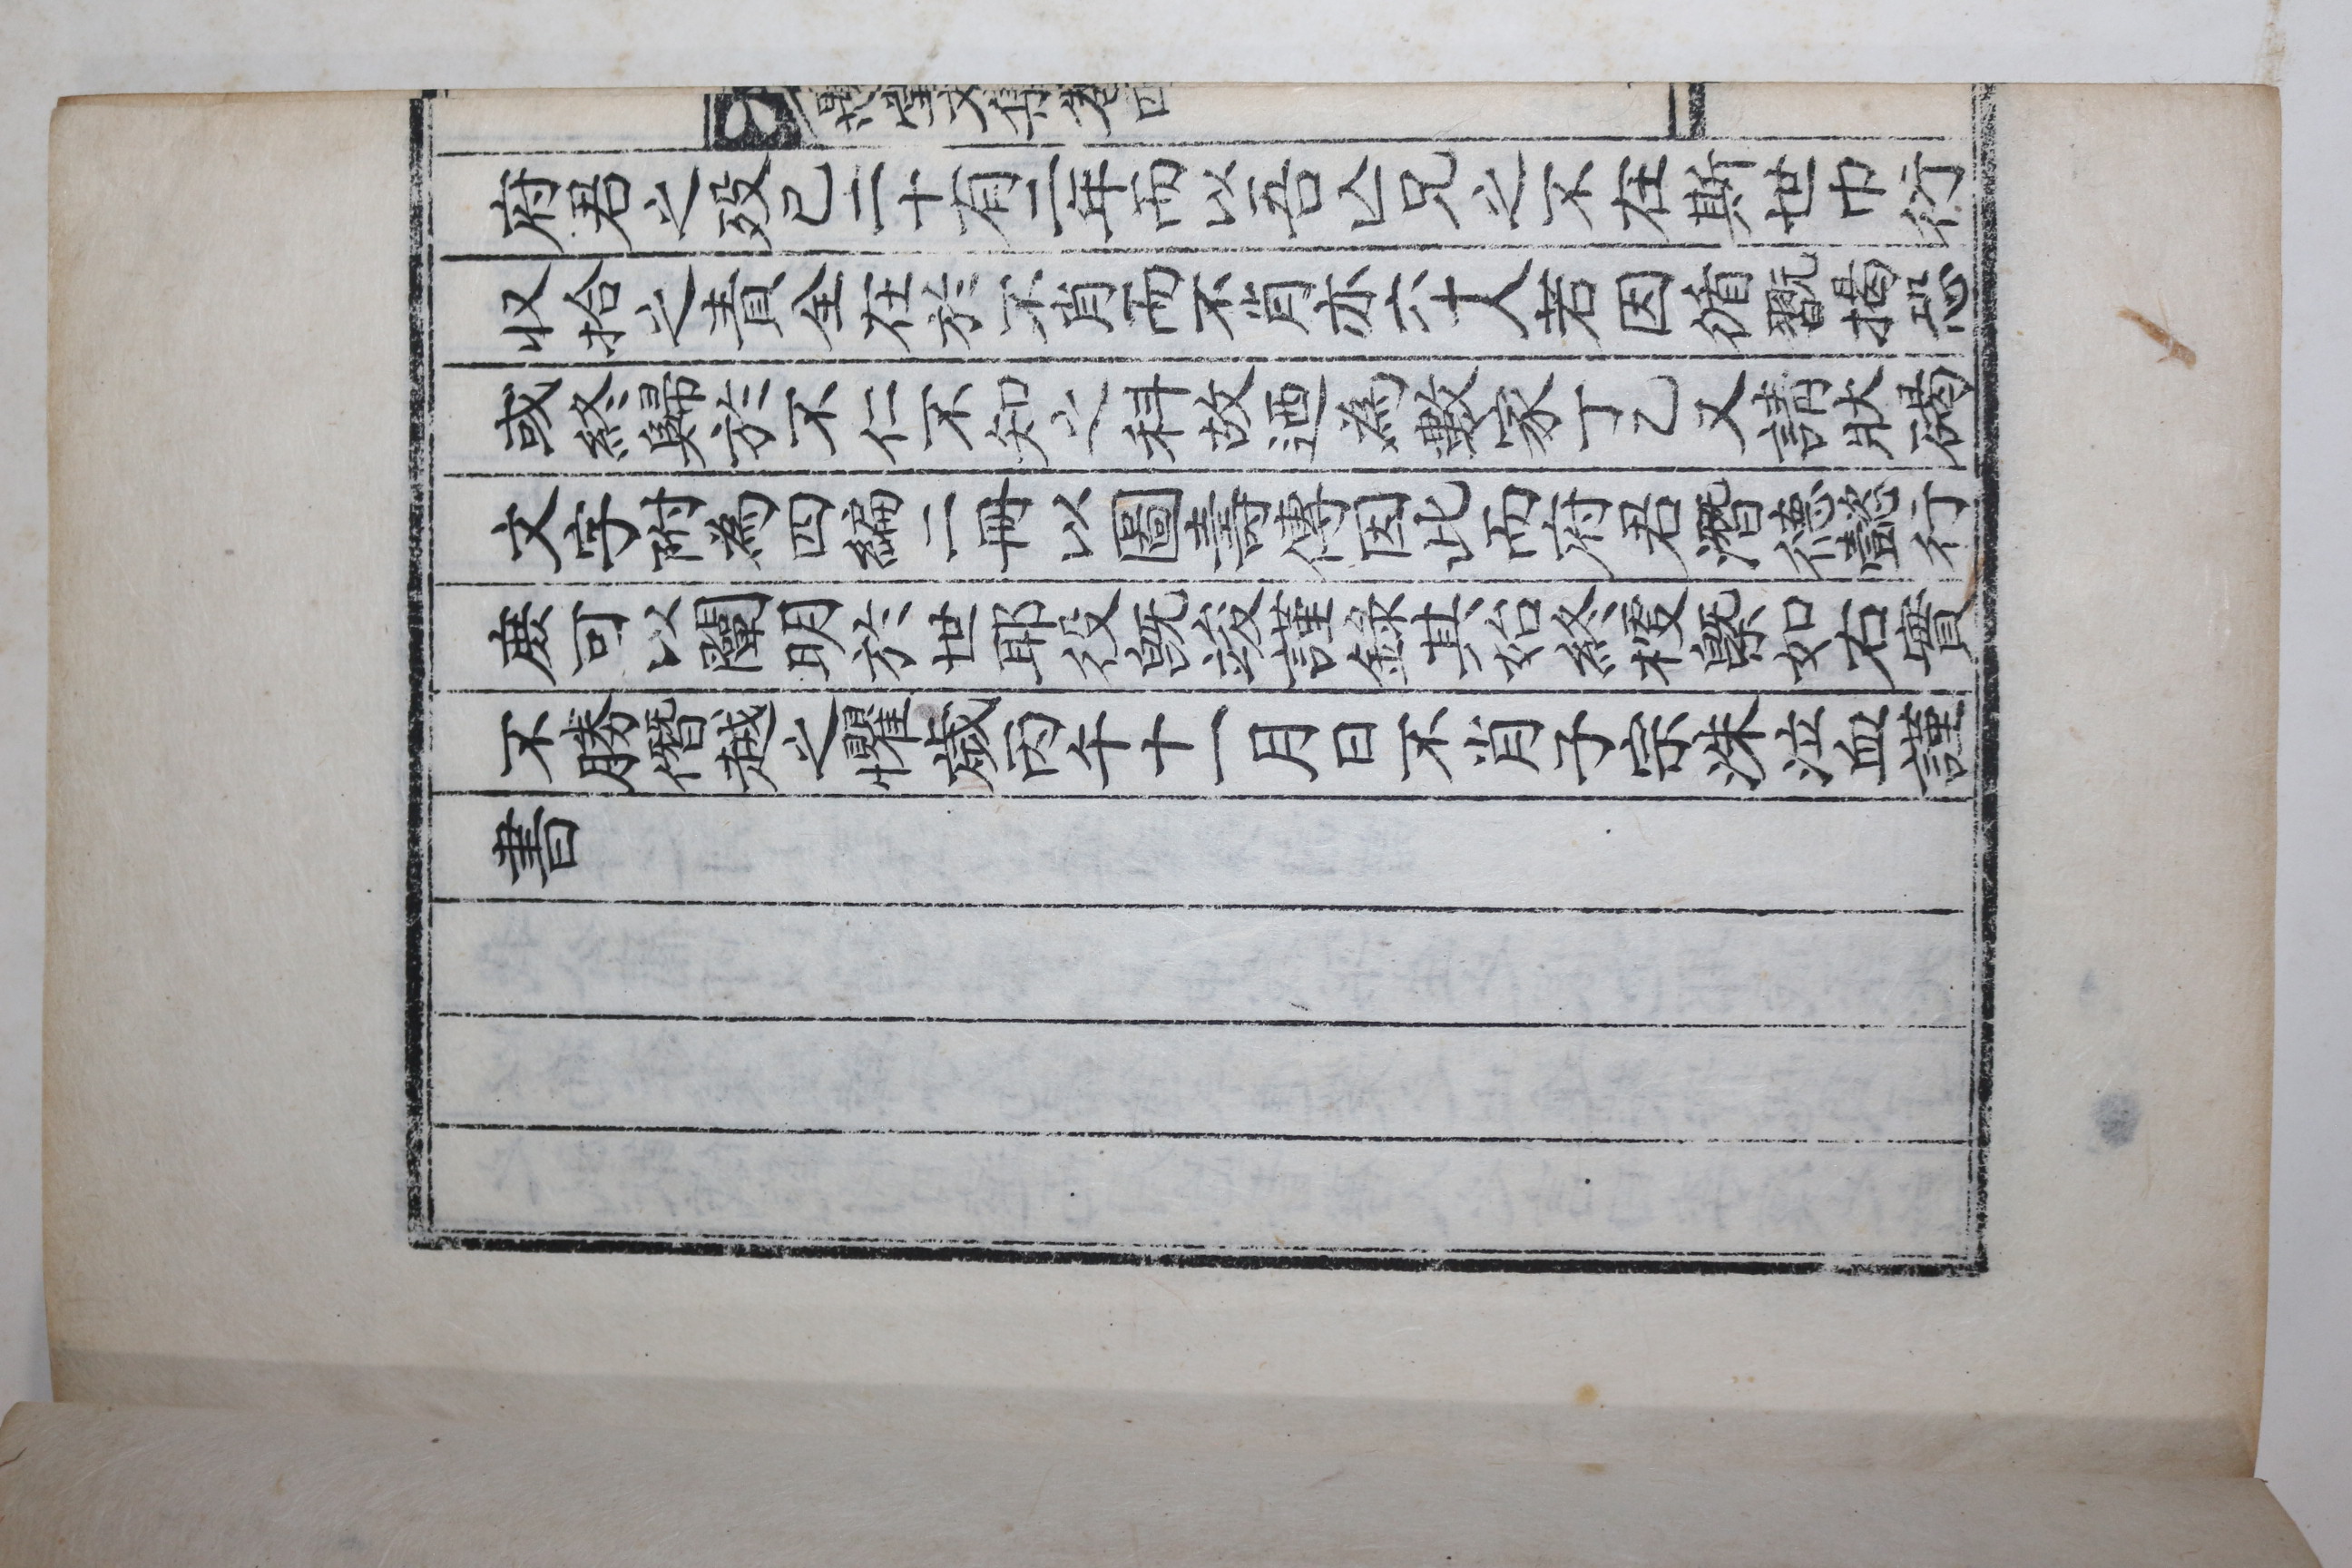 愚堂文集卷四
府君之歿已二十有二年而以吾亾兄之不在斯世巾衍
収拾之責全在於不肖而不肖亦六十人若因循翫愒恐
或終歸於不仁不知之科故迺為數家丁乙又請狀碣
文字附為四編二冊以圖壽傳因此而府君潛德懿行
庻可以闡明於世耶役旣竣謹錄其始終梗槩如右實
不勝僭越之懼歲丙午十一月日不肖子宗洙泣血謹
書